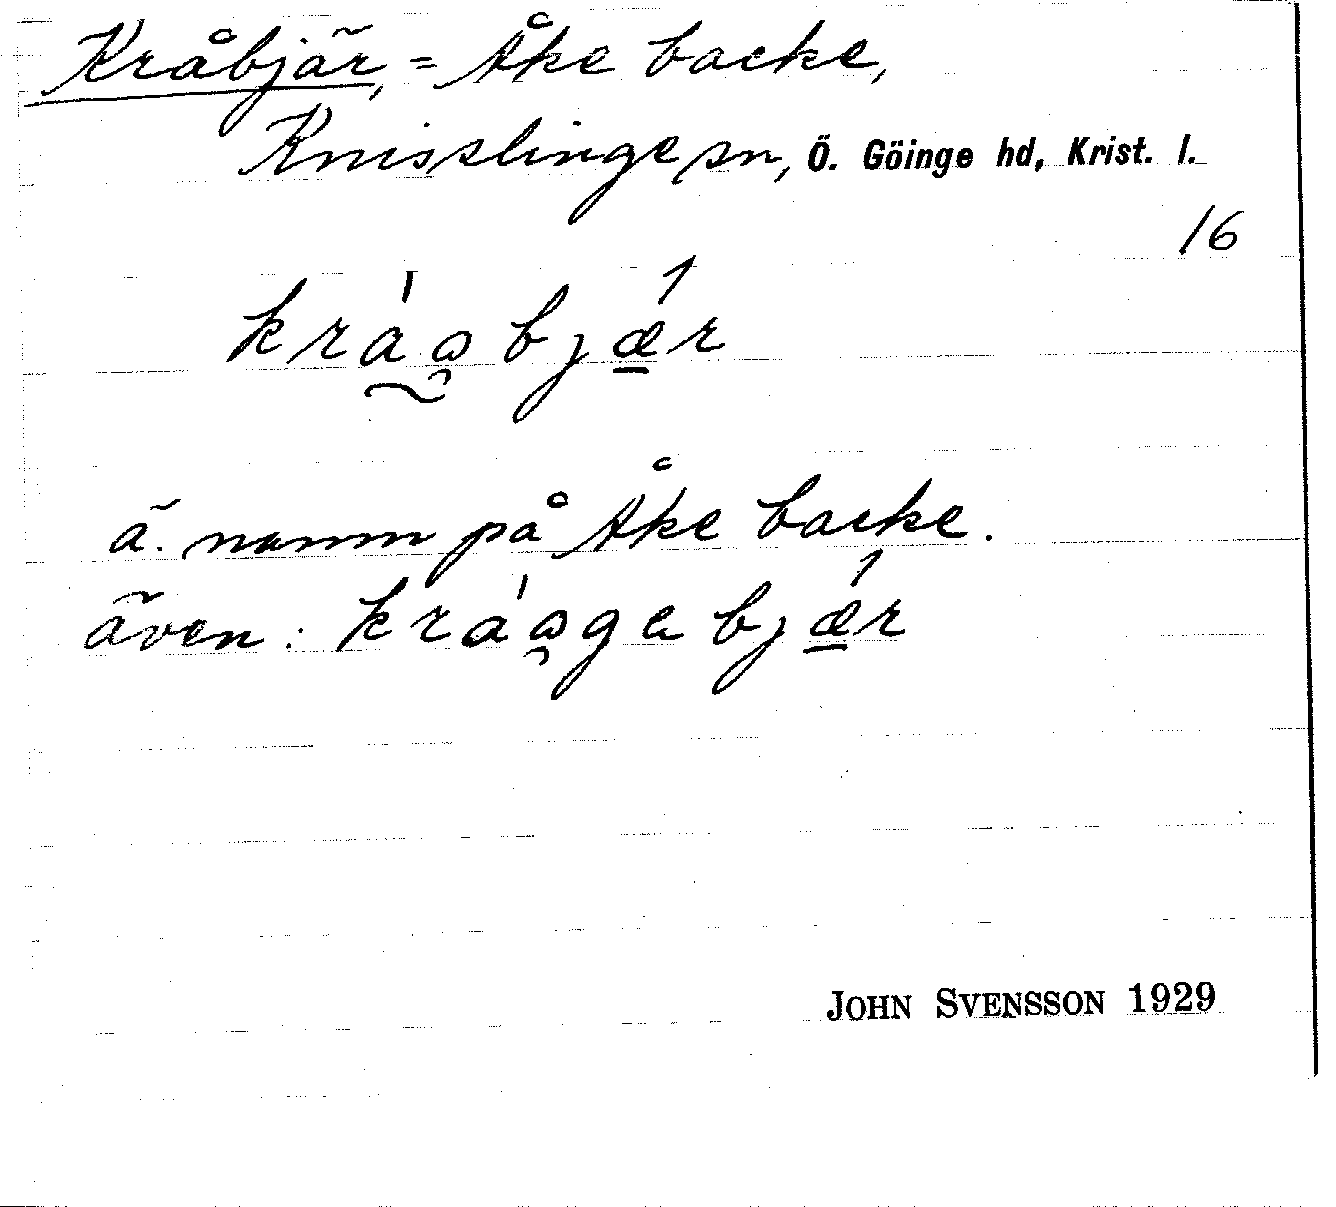 Kråbjär, = Åke backe,
Knisslinge sn, Ö. Göinge hd, Krist. l.
16
kráɷbjǽr
ä. namn på Åke backe.
även: kráɷgabjǽr
JOHN SVENSSON 1929